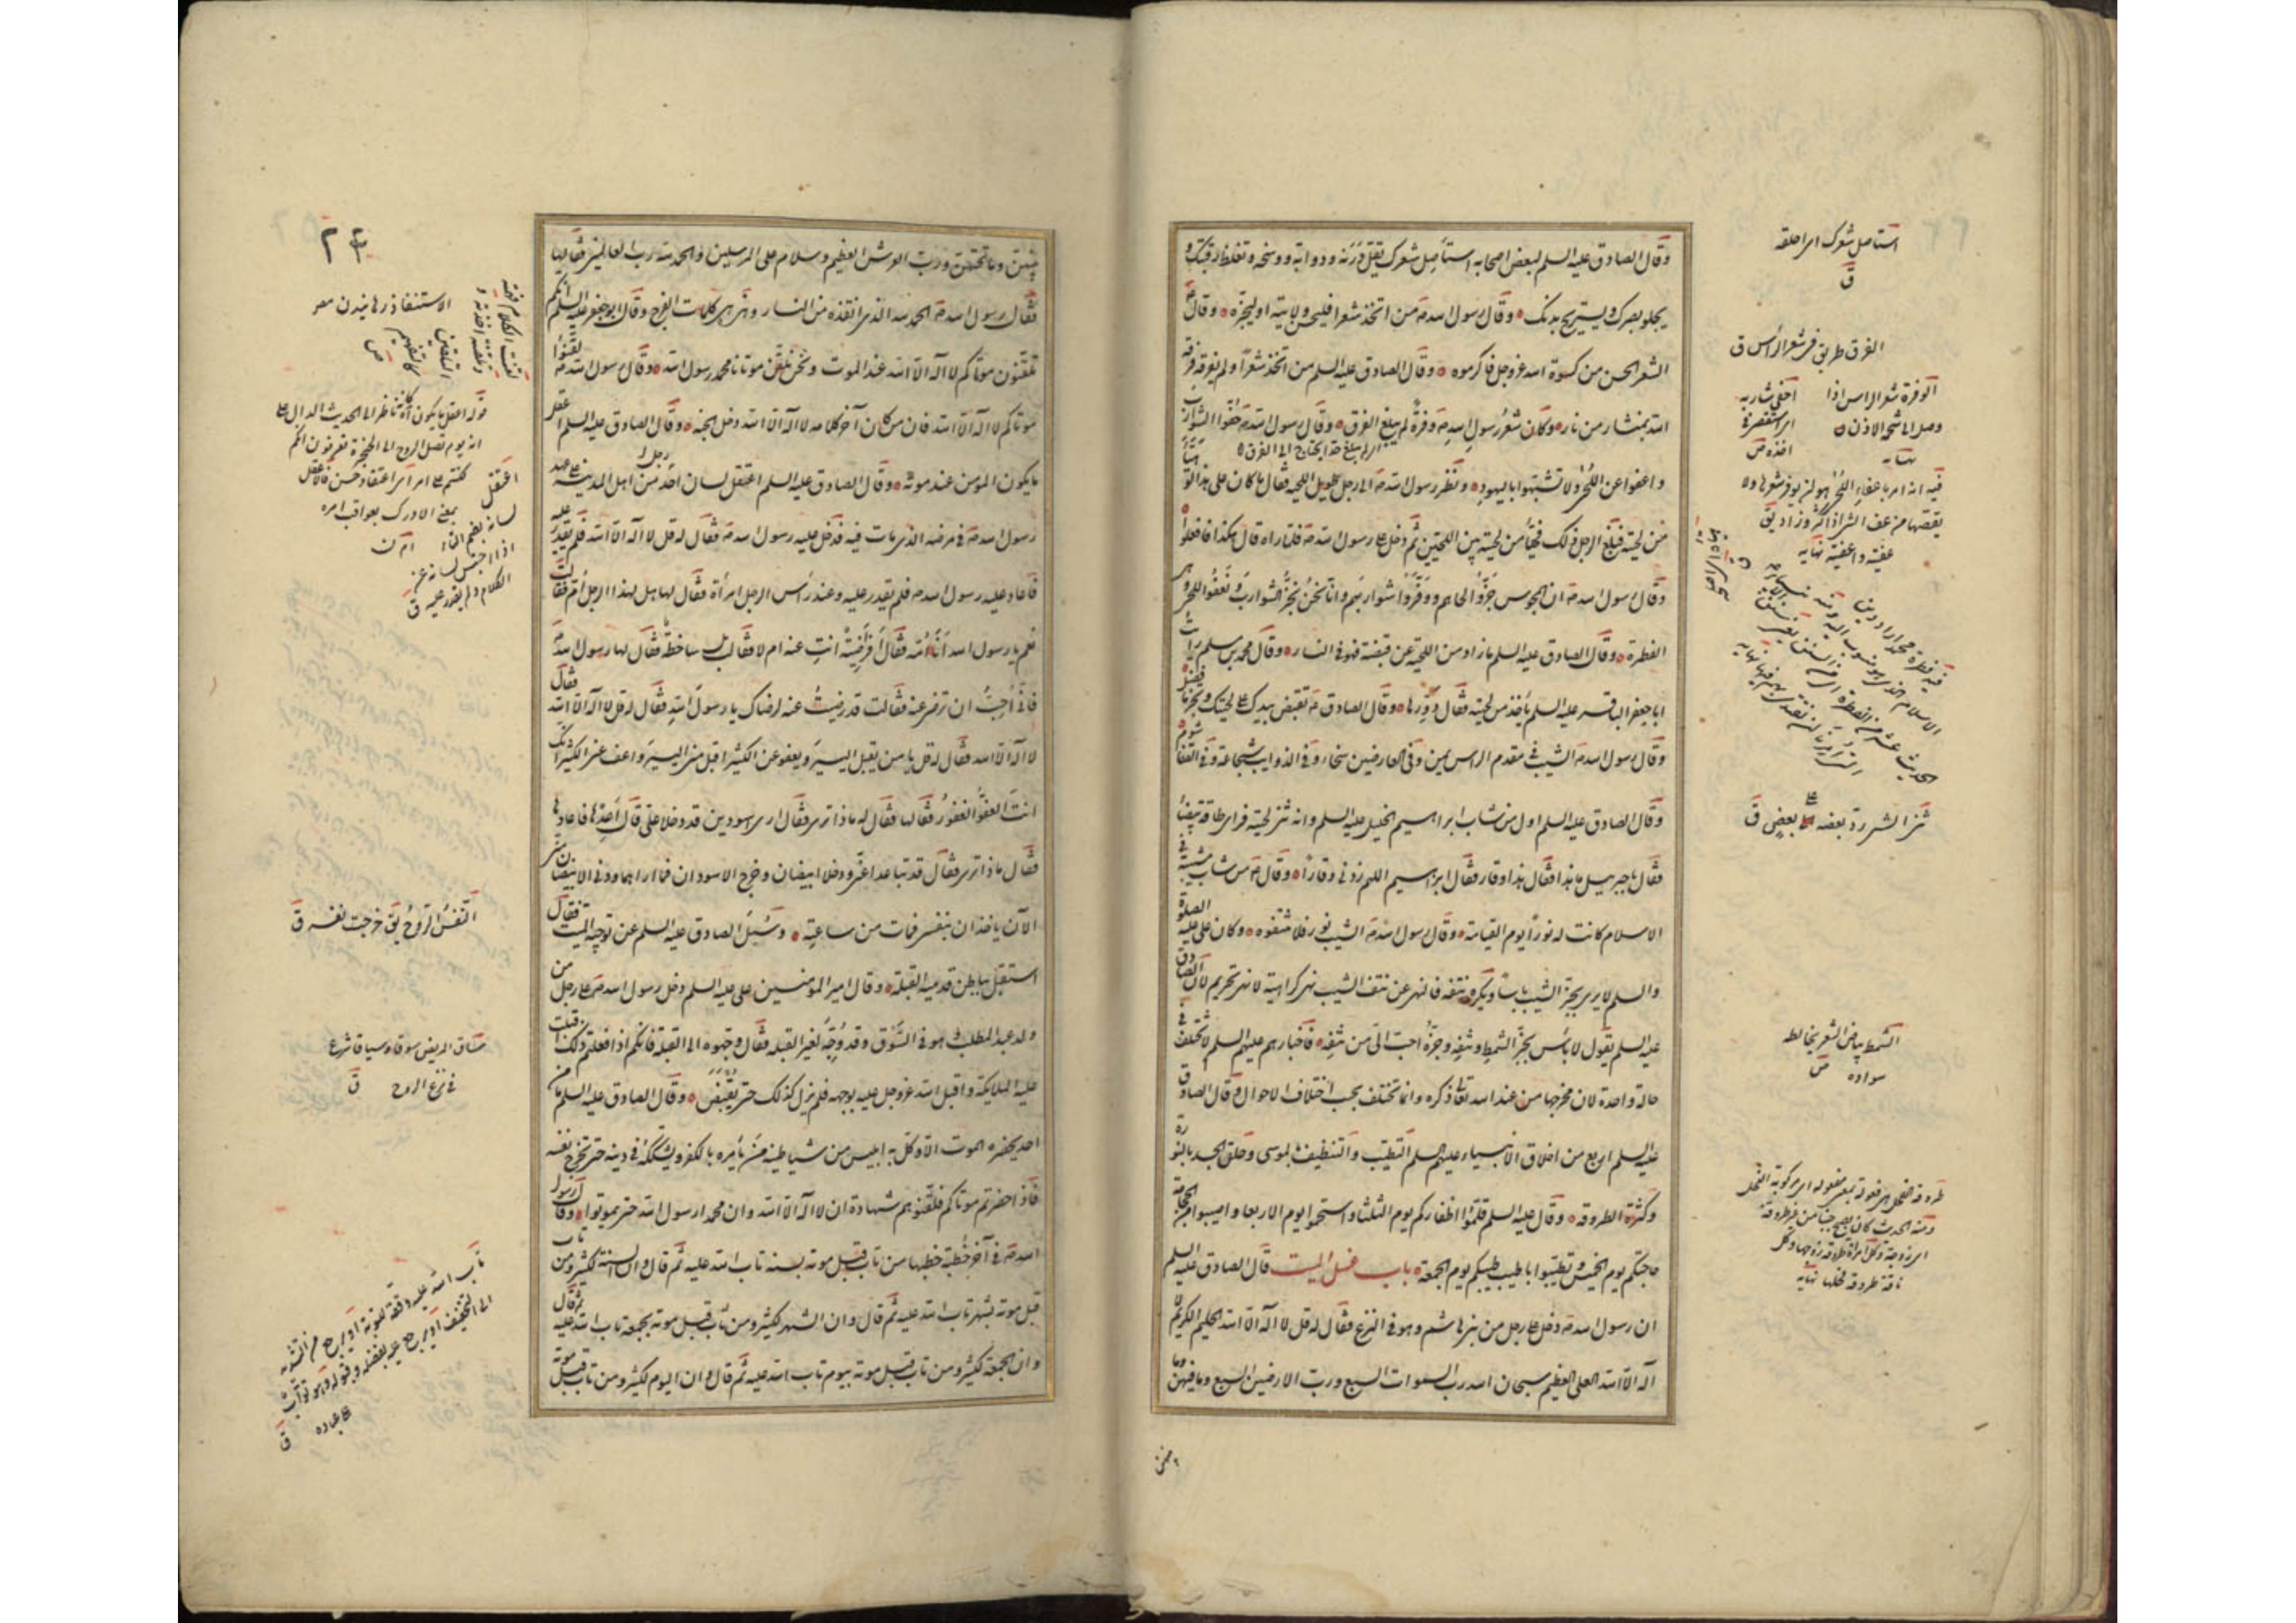 وقال الصادق عليه السلم لبعض اصحابه استاصل شعرك يقل درنه ودوابه ووسخه وتغلظ رقبتك و
يجلو بصرك ويستريح بدنك وقال رسول الله ص من اتخذ شعرا فليحسن ولايته او ليجزه وقال ص
الشعر الحسن من كسوة الله عز وجل فاكرموه وقال الصادق عليه السلم من اتخذ شعرا ولم يفرقه فرقه
الله بمنشار من نار وكان شعر رسول الله ص وفرة لم يبلغ الفرق وقال رسول الله ص حفوا الشوارب
واعفوا عن اللحى ولا تشبهوا باليهود ونظر رسول الله ص الى رجل طويل اللحيه فقال ما كان على هذا لو هيأ
من لحيته فبلغ الرجل ذلك فهيأ من لحيته بين اللحيتين ثم دخل على رسول الله ص فلما راه قال هكذا فافعلوا
وقال رسول الله ص ان المجوس جزوا لحاهم ووفروا شواربهم وانا نحن نجز الشوارب ونعفو اللحى وهى
الفطرة وقال الصادق عليه السلم ما زاد من اللحية عن قبضة فهو في النار وقال محمد بن مسلم رايت
ابا جعفر الباقر عليه السلم ياخذ من لحيته فقال دوروها وقال الصادق ع تقبض بيدك على لحيتك وتجز ما فضل
وقال رسول الله ص الشيب في مقدم الراس يمن وفي العارضين سخاء وفي الذوايب شجاعة وفي القفا شوم
وقال الصادق عليه السلم اول من شاب ابراهيم الخليل عليه السلم وانه ثنى لحيته فراى طاقة بيضاء
فقال يا جبرييل ما هذا فقال هذا وقار فقال ابراهيم اللهم زدني وقارا وقال ع من شاب شيبة في
الاسلام كانت له نورا يوم القيامة وقال رسول الله ص الشيب نور فلا تنتفوه وكان علي عليه الصلوة
والسلم لا يرى بجز الشيب باسا ويكره نتفه فالنهى عن نتف الشيب نهى كراهية لا نهى تحريم لان الصادق
عليه السلم يقول لا باس بجز الشمط ونتفه وجزه احب الى من نتفه فاخبارهم عليهم السلم لا تختلف في
حالة واحدة لان مخرجها من عند الله تعالى ذكره وانما تختلف بحسب اختلاف الاحوال وقال الصادق
عليه السلم اربع من اخلاق الانبياء عليهم السلم التطيب والتنظيف بالموسى وحلق الجسد بالنورة
وكثرة الطروقه وقال عليه السلم قلموا اظفاركم يوم الثلثا واستحموا يوم الاربعا واصيبوا من الحجامة
حاجتكم يوم الخميس وتطيبوا باطيب طيبكم يوم الجمعة باب غسل الميت قال الصادق عليه السلم
ان رسول الله ص دخل على رجل من بني هاشم وهو في النزع فقال له قل لا اله الا الله الحليم الكريم لا
اله الا الله العلي العظيم سبحان الله رب السموات السبع ورب الارضين السبع وما فيهن وما
استاصل شعرك اى احلقه
ق
الفرق طريق في شعر الراس ق
الوفرة شعر الراس اذا
وصل الى شحمة الاذن
احفى شاربه
فيه انه امر باعفاء اللحى هو ان يوفر شعرها ولا
يقصها من عفى الشي اذا كثر وزاد يق
عفيته واعفيته نهايه
ثنى الشي رد بعضه على بعض ق
الشمط بياض الشعر يخالط
سواده ص
ناقة طروقة فحلها نهايه
٢٣
بينهن وما تحتهن ورب العرش العظيم وسلام على المرسلين والحمد لله رب العالمين فقالها
فقال رسول الله ص الحمد لله الذى انقذه من النار وهذه هى كلمات الفرج وقال ابو جعفر عليه السلم انكم
تلقنون موتاكم لا اله الا الله عند الموت ونحن نلقن موتانا محمد رسول الله وقال رسول الله ص لقنوا
موتاكم لا اله الا الله فان من كان آخر كلامه لا اله الا الله دخل الجنة وقال الصادق عليه السلم اعقل
ما يكون المومن عند موته وقال الصادق عليه السلم اعتقل لسان رجل من اهل المدينة على عهد
رسول الله ص في مرضه الذى مات فيه فدخل عليه رسول الله ص فقال له قل لا اله الا الله فلم يقدر عليه
فاعاد عليه رسول الله ص فلم يقدر عليه وعند راس الرجل امرأة فقال لها هل لهذا الرجل ام فقالت
نعم يا رسول الله انا امه فقال افراضية انت عنه ام لا فقالت بل ساخطة فقال لها رسول الله ص
فانى احب ان ترضى عنه فقالت قد رضيت عنه لرضاك يا رسول الله فقال له قل لا اله الا الله فقال
لا اله الا الله فقال له قل يا من يقبل اليسير ويعفو عن الكثير اقبل منى اليسير واعف عنى الكثير انك
انت العفو الغفور فقالها فقال له ماذا ترى فقال ارى اسودين قد دخلا على قال اعدها فاعادها
فقال ماذا ترى فقال قد تباعدا عنى ودخل ابيضان وخرج الاسودان فما اراهما ودنى الابيضان منى
الآن ياخذان بنفسى فمات من ساعته وسئل الصادق عليه السلم عن توجيه الميت فقال
استقبل بباطن قدميه القبلة وقال امير المومنين على عليه السلم دخل رسول الله ص على رجل من
ولد عبد المطلب وهو في السوق وقد وجه لغير القبلة فقال وجهوه الى القبلة فانكم اذا فعلتم ذلك اقبلت
عليه الملايكة واقبل الله عز وجل عليه بوجهه فلم يزل كذلك حتى يقبض وقال الصادق عليه السلم ما من
احد يحضره الموت الا وكل به ابليس من شياطينه من يامره بالكفر ويشككه في دينه حتى تخرج نفسه
فاذا حضرتم موتاكم فلقنوهم شهادة ان لا اله الا الله وان محمدا رسول الله حتى يموتوا وقال رسول
الله ص في آخر خطبة خطبها من تاب قبل موته بسنة تاب الله عليه ثم قال وان السنة لكثيرة ومن تاب
قبل موته بشهر تاب الله عليه ثم قال وان الشهر لكثير ومن تاب قبل موته بجمعة تاب الله عليه ثم قال
وان الجمعة لكثيرة ومن تاب قبل موته بيوم تاب الله عليه ثم قال وان اليوم لكثير ومن تاب قبل موته
النفس الروح يق خرجت نفسه ق
ساق المريض سوقا وسياقا شرع
في نزع الروح ق